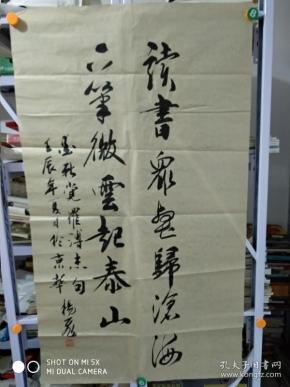 读書衆壑歸滄海
下筆微雲起泰山
愛新覺羅溥杰句
壬辰年夏月於京華 楊
SHOT ON MI 5X
MI DUAL CAMERA
孔夫子旧书网